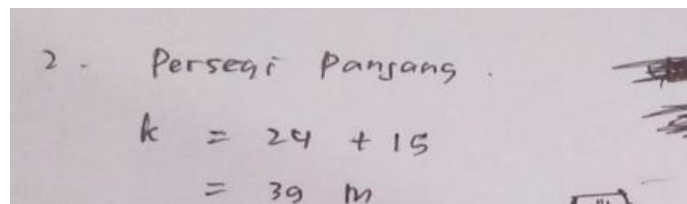 2. Persegi Panjang.
k = 24 + 15
= 39 m